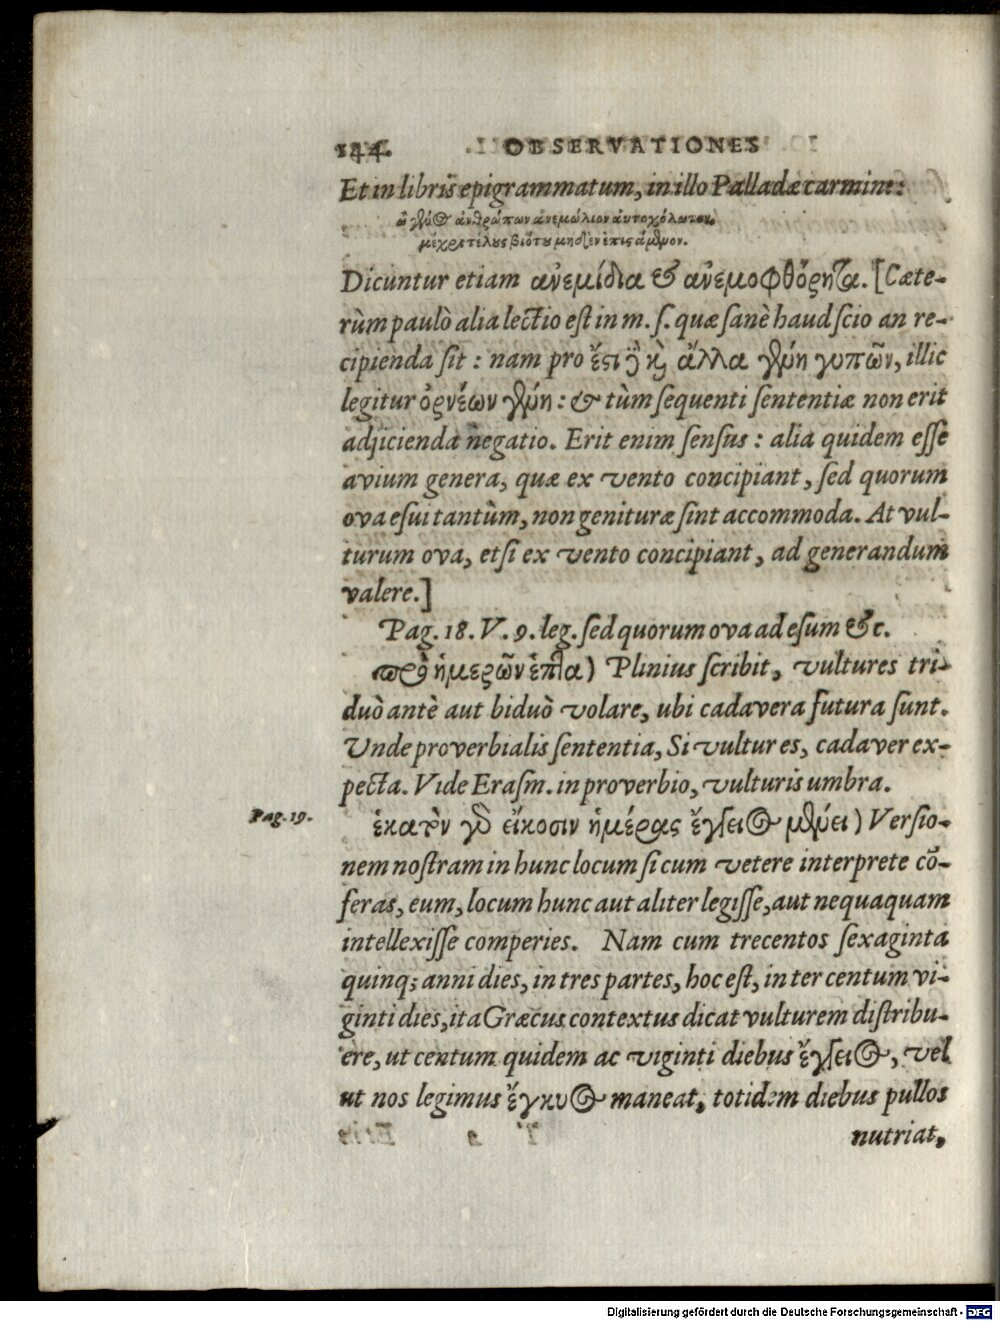 144. OBSERVATIONES
Et in libris epigrammatum, in illo Palladæ carmine:
ὦ γένος ἀνθρώπων ἀνεμώλιον αὐτοχόλωτον,
μέχρι τέλους βιότου μηδὲν ἐπιστάμενον.
Dicuntur etiam ἀνεμίδια & ἀνεμοφθόρητα. [Cæte-
rùm paulò alia lectio est in m. s. quæ sanè haud scio an re-
cipienda sit: nam pro ἔστι δὲ καὶ ἄλλα γένη γυπῶν, illic
legitur ὀρνέων γένη: & tùm sequenti sententiæ non erit
adjicienda negatio. Erit enim sensus: alia quidem esse
avium genera, quæ ex vento concipiant, sed quorum
ova esui tantùm, non genituræ sint accommoda. At vul-
turum ova, etsi ex vento concipiant, ad generandum
valere.]
Pag. 18. V. 9. leg. sed quorum ova ad esum &c.
πρὸ ἡμερῶν ἑπτὰ) Plinius scribit, vultures tri-
duò antè aut biduò volare, ubi cadavera futura sunt.
Unde proverbialis sententia, Si vultur es, cadaver ex-
pecta. Vide Erasm. in proverbio, vulturis umbra.
Pag. 19.
ἑκατὸν γὸ εἴκοσιν ἡμέρας ἔγγειος μένει) Versio-
nem nostram in hunc locum si cum vetere interprete cō-
feras, eum, locum hunc aut aliter legisse, aut nequaquam
intellexisse comperies. Nam cum trecentos sexaginta
quinq; anni dies, in tres partes, hoc est, in ter centum vi-
ginti dies, ita Græcus contextus dicat vulturem distribu-
ere, ut centum quidem ac viginti diebus ἔγγειος, vel
ut nos legimus ἔγκυος maneat, totidem diebus pullos
nutriat,
Digitalisierung gefördert durch die Deutsche Forschungsgemeinschaft - DFG